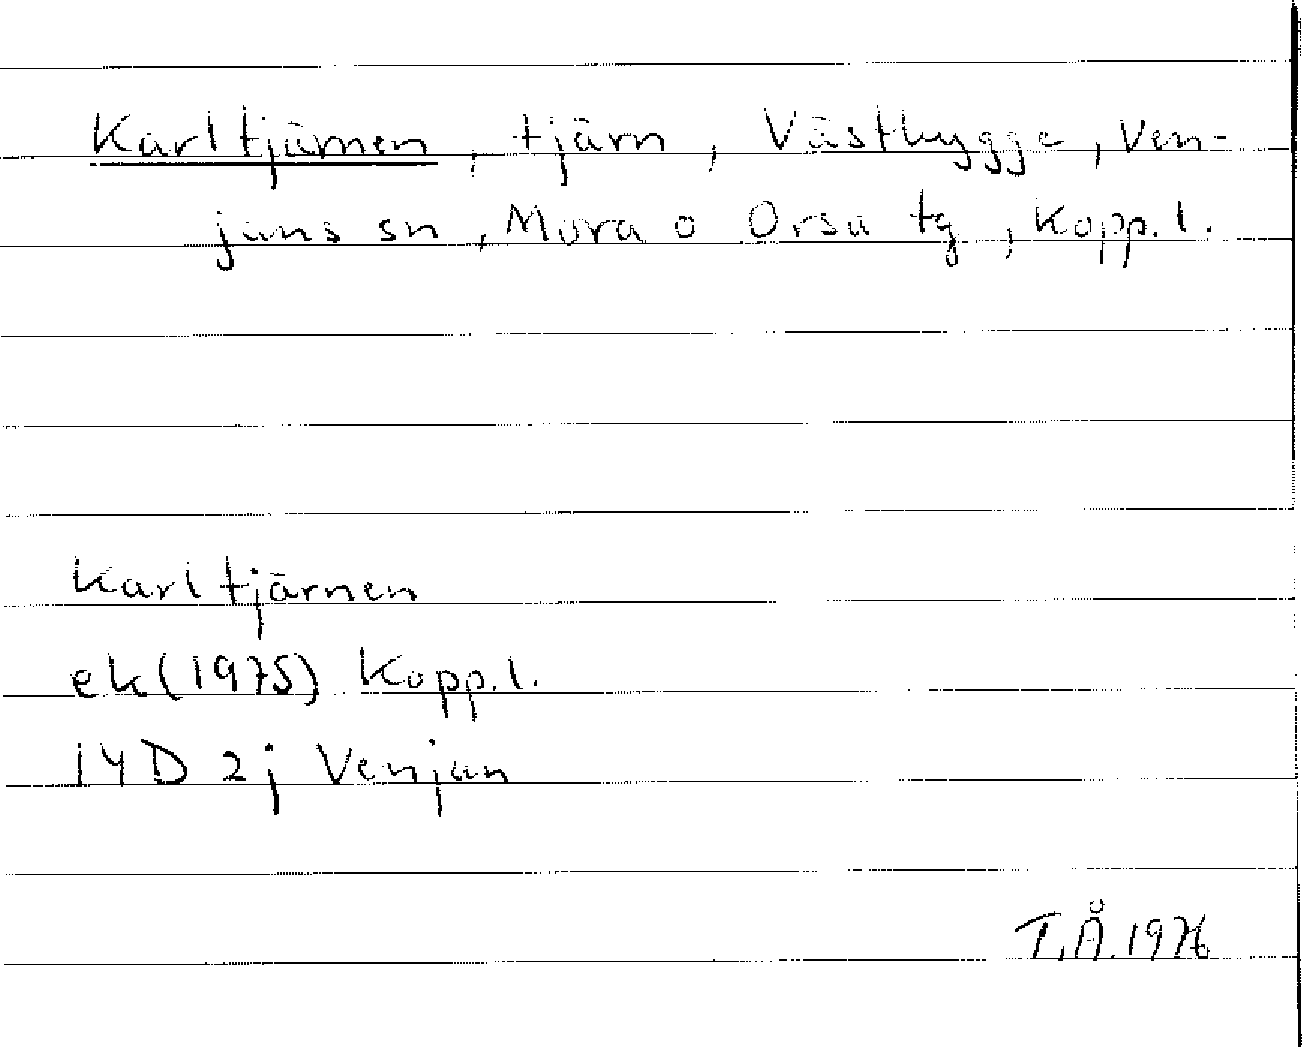 Karltjärnen, tjärn, Västbygge, Ven-
jans sn, Mora o Orsa tg, Kopp. l.
Karltjärnen
ek (1975) Kopp. l.
14D 2j Venjan
T.Å. 1976